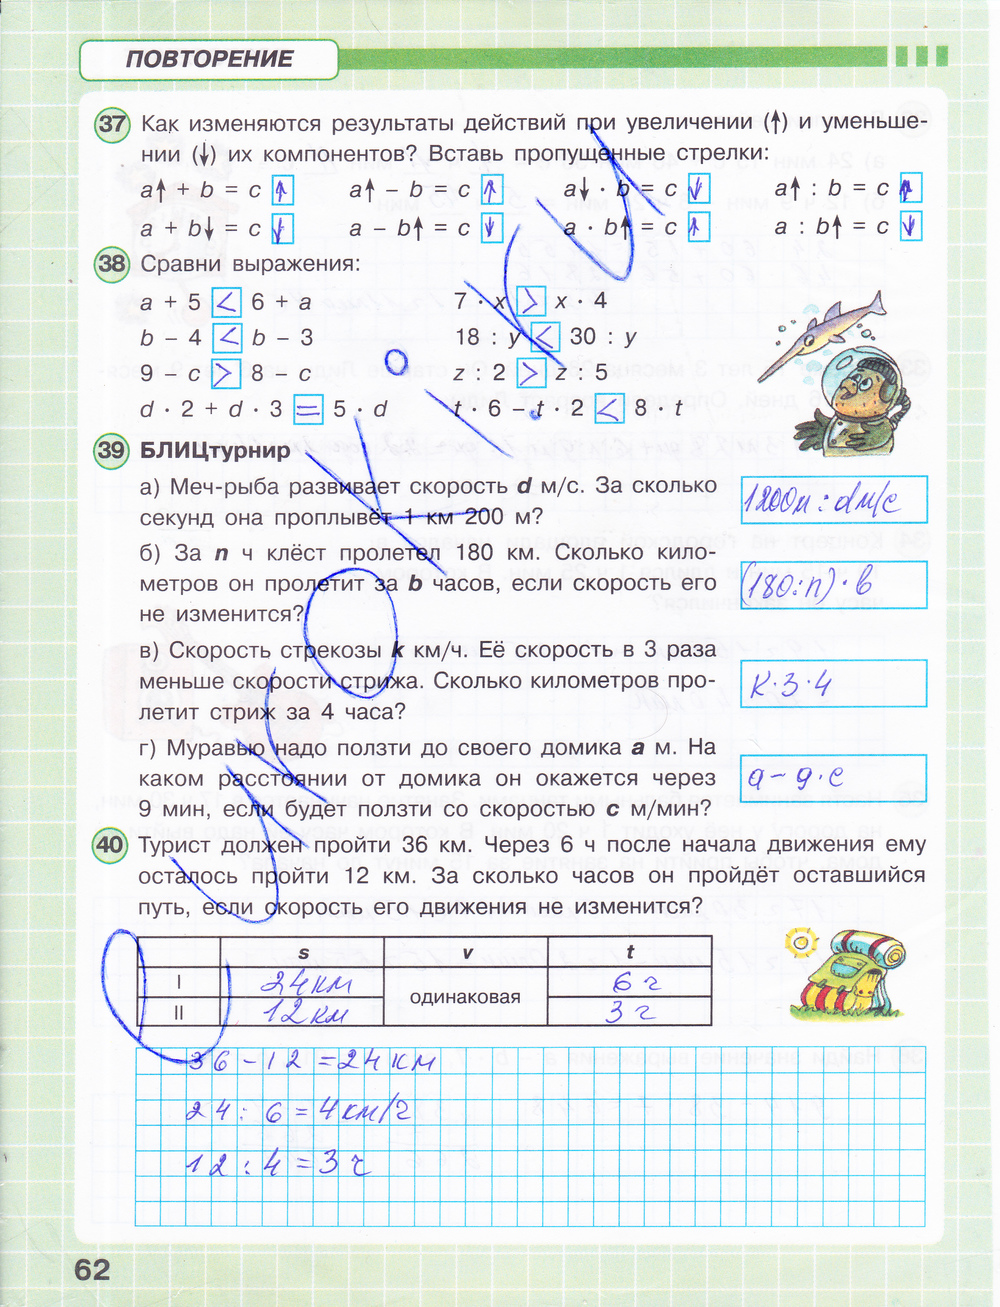 ПОВТОРЕНИЕ
37 Как изменяются результаты действий при увеличении (↑) и уменьше-
нии (↓) их компонентов? Вставь пропущенные стрелки:
a↑ + b = c ↑ a↑ − b = c ↑ a↓ · b = c ↓ a↑ : b = c ↑
a + b↓ = c ↓ a − b↑ = c ↓ a · b↑ = c ↑ a : b↑ = c ↓
38 Сравни выражения:
a + 5 < 6 + a 7 · x > x · 4
b − 4 < b − 3 18 : y < 30 : y
9 − c > 8 − c z : 2 > z : 5
d · 2 + d · 3 = 5 · d t · 6 − t · 2 < 8 · t
39 БЛИЦтурнир
а) Меч-рыба развивает скорость d м/с. За сколько
секунд она проплывёт 1 км 200 м?
1200м : d м/с
б) За n ч клёст пролетел 180 км. Сколько кило-
метров он пролетит за b часов, если скорость его
не изменится?
(180:n)·b
в) Скорость стрекозы k км/ч. Её скорость в 3 раза
меньше скорости стрижа. Сколько километров про-
летит стриж за 4 часа?
k·3·4
г) Муравью надо ползти до своего домика a м. На
каком расстоянии от домика он окажется через
9 мин, если будет ползти со скоростью c м/мин?
a − 9·c
40 Турист должен пройти 36 км. Через 6 ч после начала движения ему
осталось пройти 12 км. За сколько часов он пройдёт оставшийся
путь, если скорость его движения не изменится?
s v t
I 24км одинаковая 6 ч
II 12км 3 ч
36 − 12 = 24 км
24 : 6 = 4 км/ч
12 : 4 = 3 ч
62